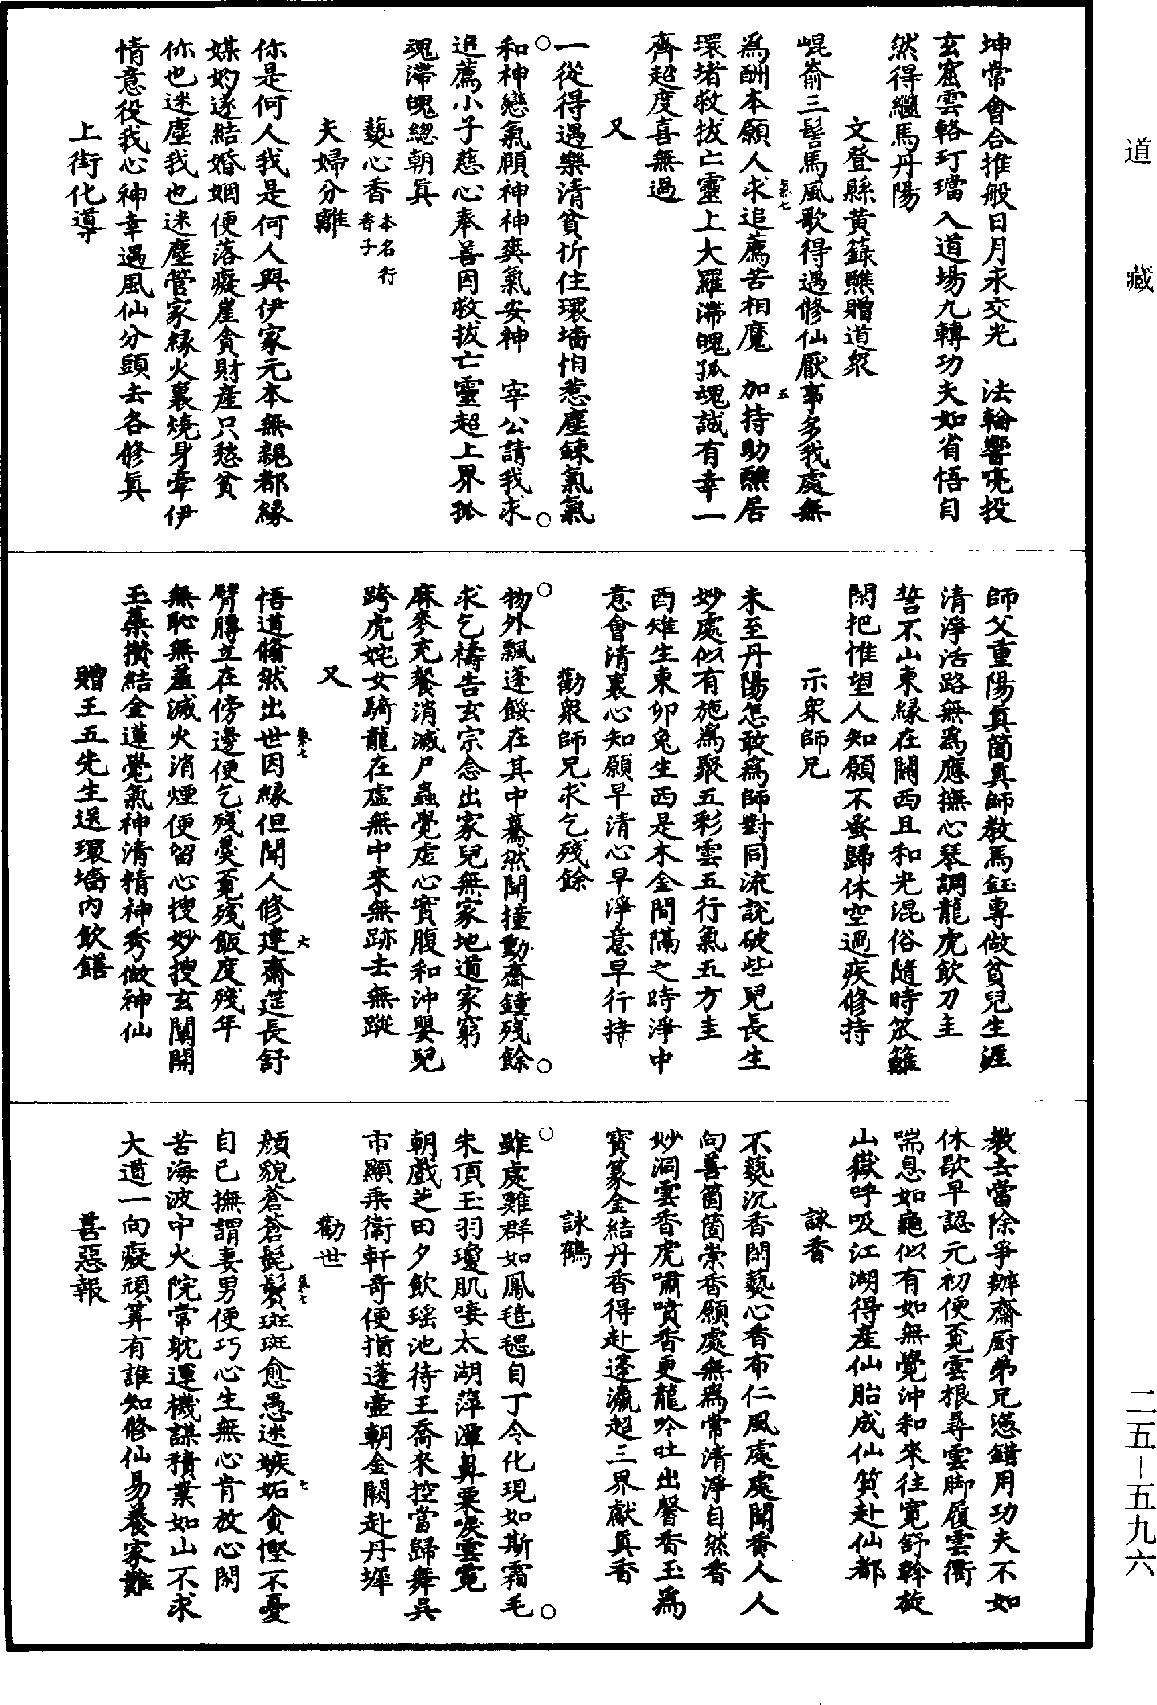 道藏
坤常會合推般日月永交光　法輪響喨投
玄窟雲輅玎璫入道場九轉功夫如省悟自
然得繼馬丹陽
文登縣黃籙醮贈道眾
崐崙三髻馬風歌得遇修仙厭事多我處無
爲酬本願人求追薦苦相魔　加持助醮居
環堵救拔亡靈上大羅滯魄孤魂誠有幸一
齊超度喜無過
又
一從得遇樂清貧忻住環墻怕惹塵鍊氣氣
和神戀氣頤神神爽氣安神　宰公請我求
追薦小子慈心奉善因救拔亡靈超上界孤
魂滯魄緫朝眞
爇心香本名行香子
夫婦分離
你是何人我是何人與伊家元本無親都緣
媒妁遂結婚姻便落癡崖貪財產只愁貧
你也迷塵我也迷塵管家緣火裏燒身牽伊
情意役我心神幸遇風仙分頭去各修眞
上街化導
師父重陽眞箇眞師敎馬鈺專做貧兒生涯
清淨活路無爲應撫心琴調龍虎飲刀圭
誓不山東緣在關西且和光混俗隨時笊籬
閑把惟望人知願不蚤歸休空過疾修持
示眾師兄
未至丹陽怎敢爲師對同流說破些兒長生
妙處似有施爲聚五彩雲五行氣五方圭
酉雉生東卯兔生西是木金間隔之時淨中
意會清裏心知願早清心早淨意早行持
勸衆師兄求乞殘餘
物外飄蓬餒在其中驀然聞撞動齋鐘殘餘
求乞禱告玄宗念出家兒無家地道家窮
麻麥充餐消滅尸蟲覺虛心實腹和沖嬰兒
跨虎姹女騎龍在虛無中來無跡去無蹤
又
悟道翛然出世因緣但聞人修建齋筵長舒
臂膊立在傍邊便乞殘羹覓殘飯度殘年
無恥無羞滅火消煙便留心搜妙搜玄關開
玉蘂攢結金蓮覺氣神清精神秀做神仙
贈王五先生送環墻內飲饍
敎去當除爭辦齋厨弟兄慿錯用功夫不如
休歇早認元初便覓雲根尋雲脚履雲衢
喘息如龜似有如無覺沖和來往寬舒斡旋
山嶽呼吸江湖得產仙胎成仙質赴仙都
詠香
不爇沉香閑爇心香布仁風處處聞香人人
向善箇箇崇香願處無爲常清淨自然香
妙洞雲香虎嘯噴香更龍吟吐出馨香玉爲
寶篆金結丹香得赴蓬瀛超三界獻眞香
詠鶴
雖處雞群如鳳毰毸自丁令化現如斯霜毛
朱頂玉羽瓊肌唼太湖萍潭鼻粟唳雲霓
朝戲芝田夕飲瑶池待王喬來控當歸舞吳
市顯乘衞軒奇便指蓬壷朝金闕赴丹墀
勸世
顏貌蒼蒼髭鬂斑斑愈愚迷嫉妬貪慳不憂
自己撫謂妻男便巧心生無心肯放心閑
苦海波中火院常躭運機謀積業如山不求
大道一向癡頑筭有誰知修仙易養家難
善惡報
二五—五九六